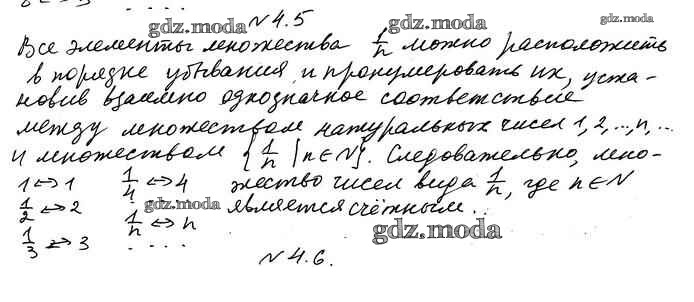 gdz.moda № 4.5 gdz.moda gdz.moda
Все элементы множества 1/n можно расположить
в порядке убывания и пронумеровать их, уста-
новив взаимно однозначное соответствие
между множеством натуральных чисел 1, 2, ..., n, ...
и множеством {1/n | n ∈ N}. Следовательно, мно-
жество чисел вида 1/n, где n ∈ N
является счётным.
1 ↔ 1
1/2 ↔ 2
1/3 ↔ 3
1/4 ↔ 4
gdz.moda
1/n ↔ n
. . . .
gdz.moda
№ 4.6.